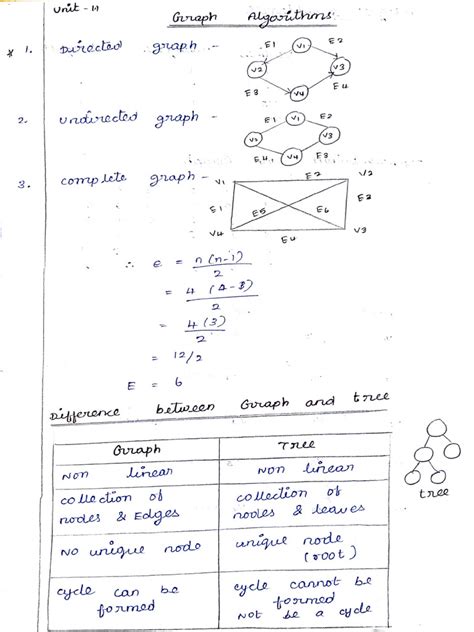 Unit - 1
Graph Algorithms
* 1. Directed graph -
E1 V1 E2
V2 V3
E3 V4 E4
2. undirected graph -
E1 V1 E2
V2 V3
E4 V4 E3
3. complete graph -
V1 E2 V2
E1 E5 E6 E3
V4 E4 V3
∴ e = n(n-1)/2
= 4 (4-1)/2
= 4(3)/2
= 12/2
E = 6
Difference between Graph and tree
Graph Tree
Non linear Non linear
collection of collection of
nodes & Edges nodes & leaves
No unique node unique node
(root)
cycle can be cycle cannot be
formed formed
Not be a cycle
tree